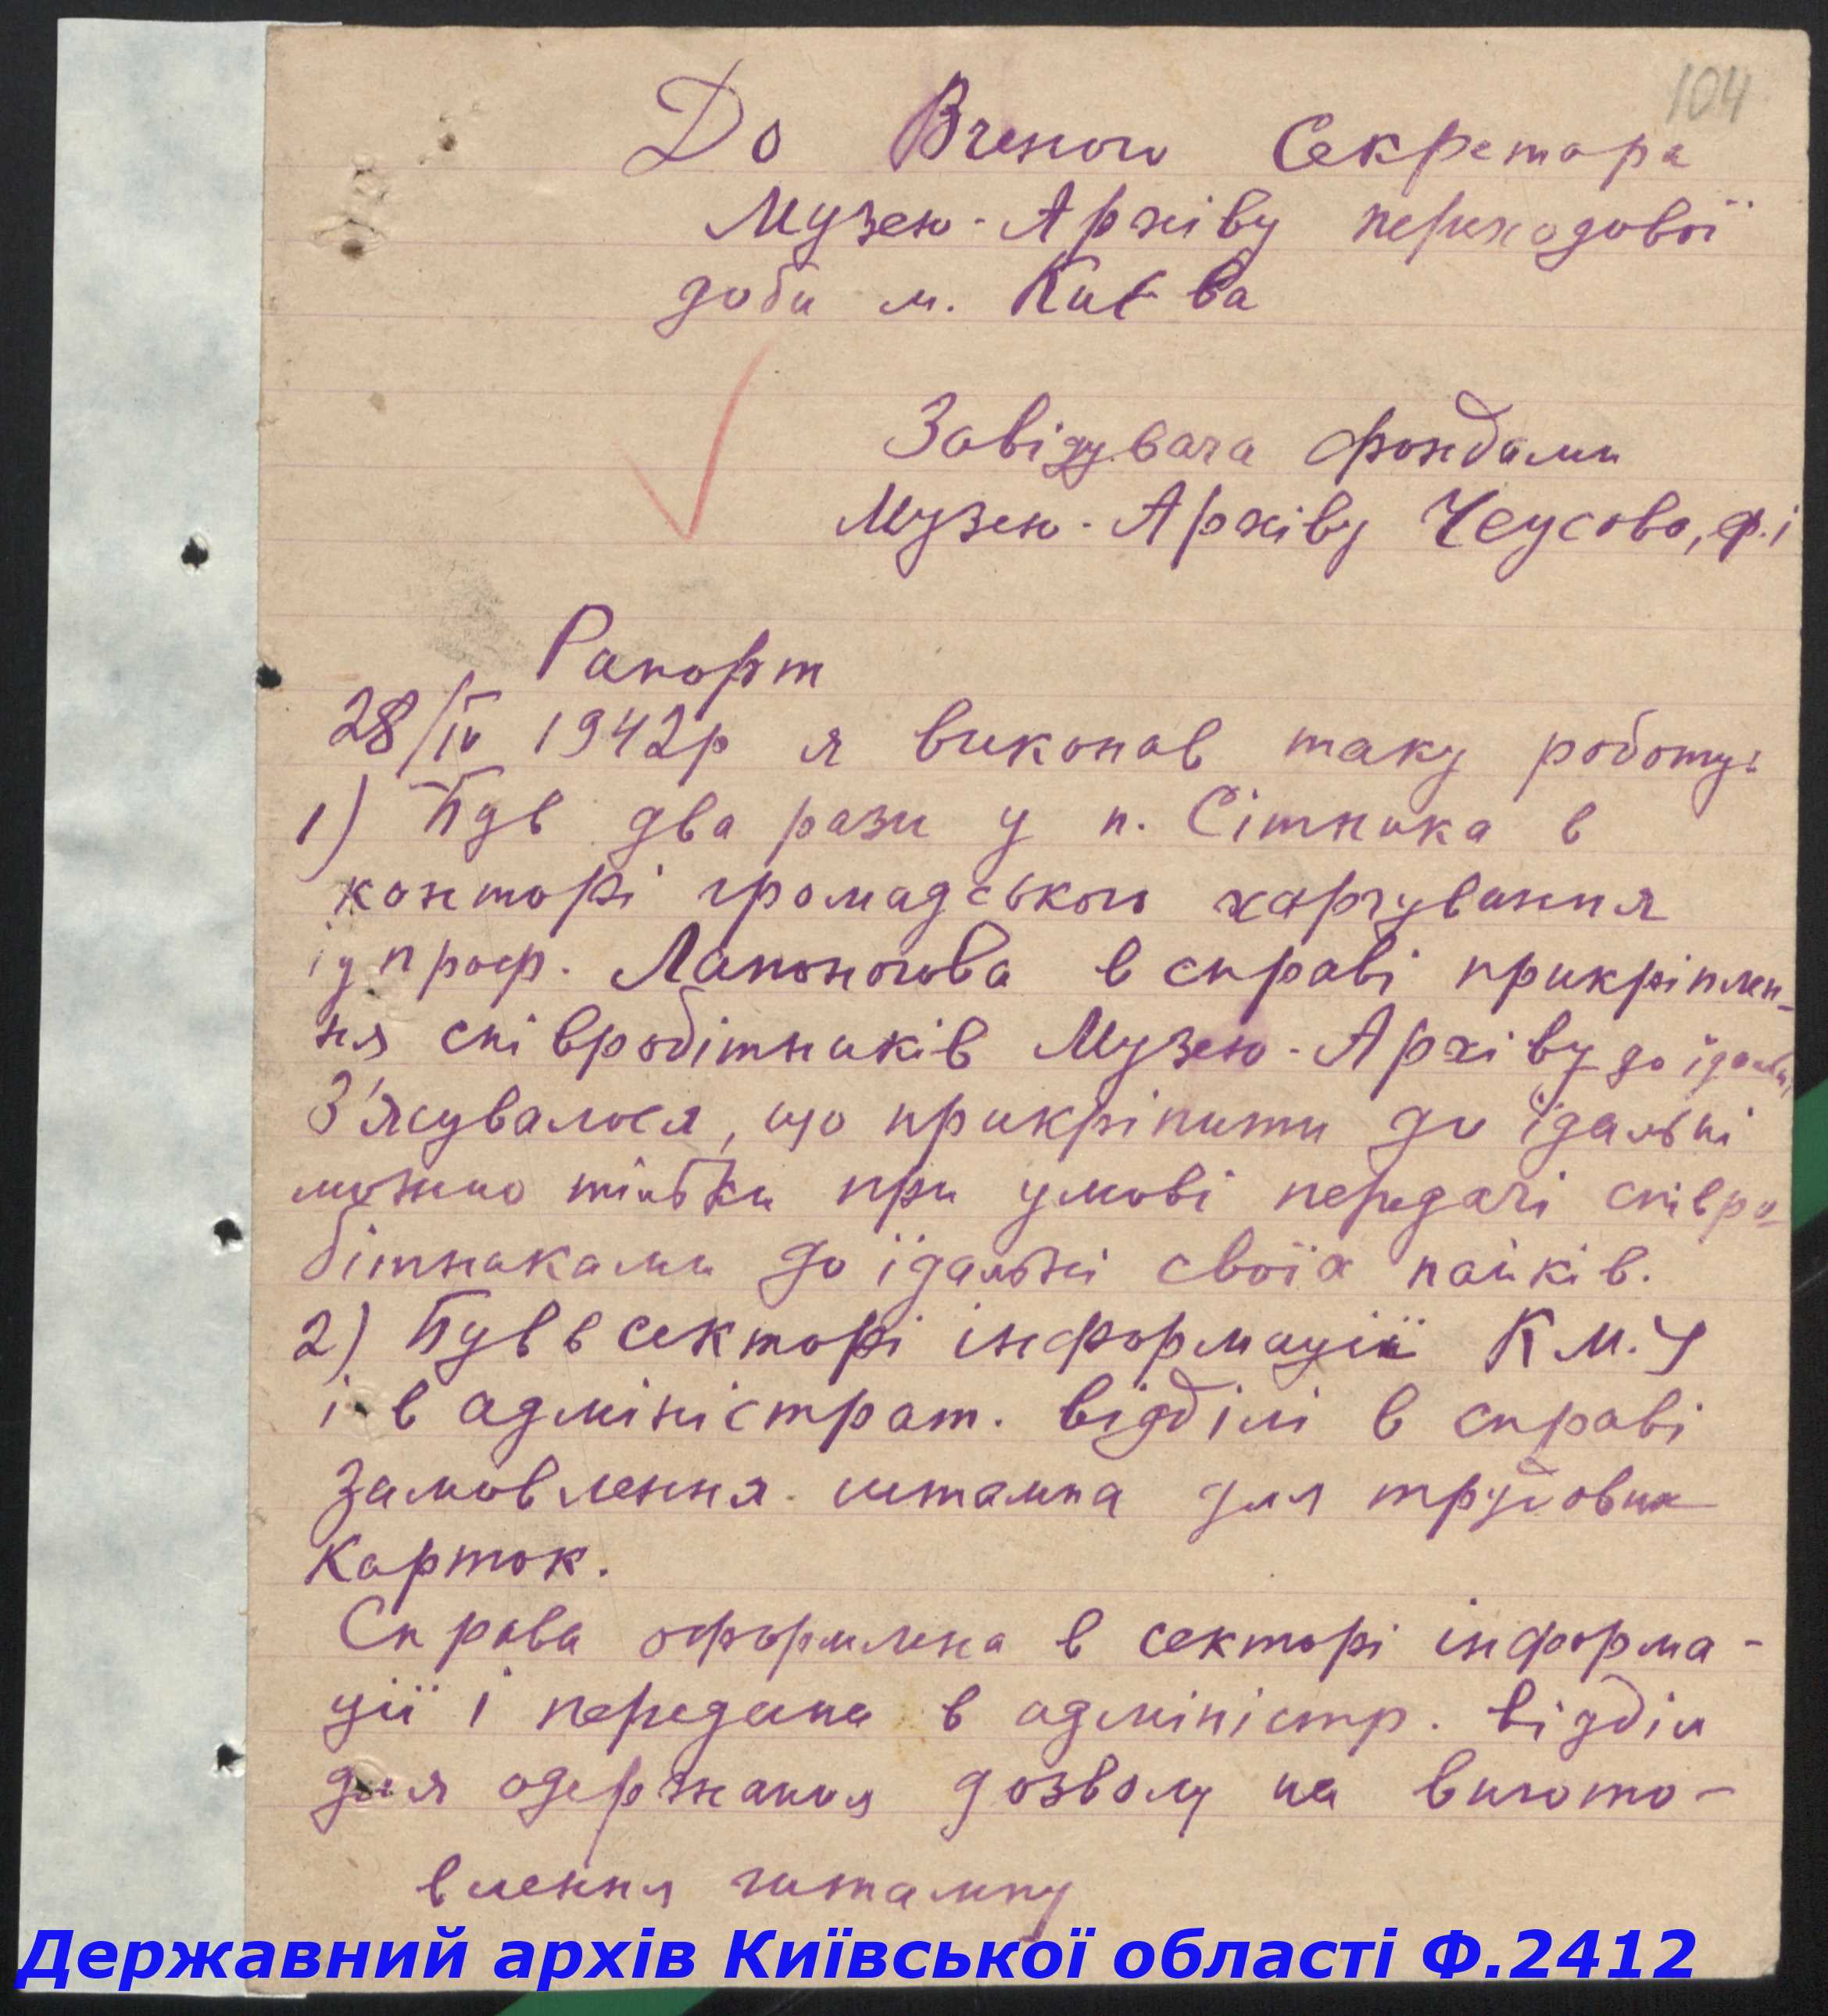 104
До Вченого Секретаря
Музею-Архіву переходової
доби м. Києва
Завідувача фондами
Музею-Архіву Чеусова, Ф.І
Рапорт
28/IV 1942р я виконав таку роботу:
1) Був два рази у п. Сітника в
конторі громадського харчування
і у проф. Лапоногова в справі прикріплен-
ня співробітників Музею-Архіву до їдальні,
З'ясувалося, що прикріпити до їдальні
можно тільки при умові передачі співро-
бітниками до їдальні своїх пайків.
2) Був в секторі інформації К М.У
і в адміністрат. відділі в справі
замовлення штампа для трудових
карток.
Справа оформлена в секторі інформа-
ції і передана в адміністр. відділ
для одержання дозволу на вигото-
влення штампу
Державний архів Київської області Ф.2412